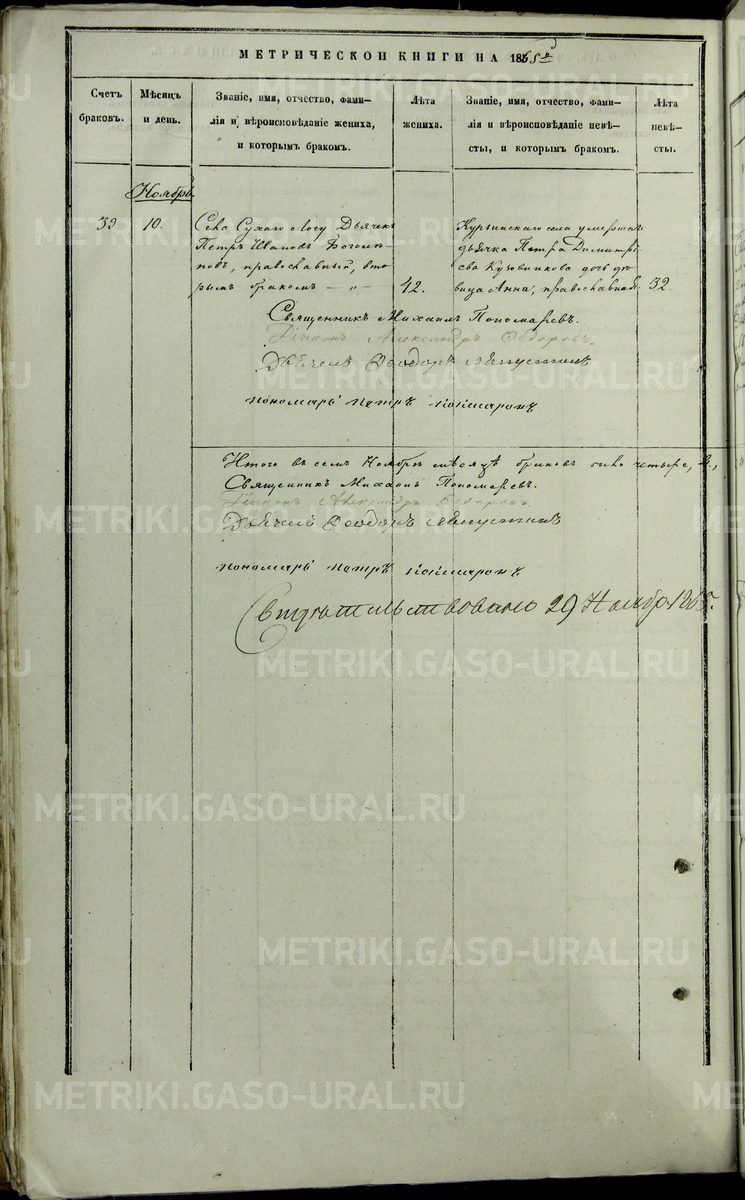 МЕТРИЧЕСКОИ КНИГИ НА 1865й
Счетъ браковъ.
Мѣсяцъ и день.
Званіе, имя, отчество, фами-
лія и вѣроисповѣданіе жениха,
и которымъ бракомъ.
Лѣта жениха.
Званіе, имя, отчество, фами-
лія и вѣроисповѣданіе невѣ-
сты, и которымъ бракомъ.
Лѣта невѣ-
сты.
Ноябрь.
39
10.
Села Сухаго Логу Дьячекъ
Петръ Ивановъ
православный, вто-
рымъ бракомъ — „ —
42.
Курьинскаго села умершаго
дьячка Петра Димитрі-
ева дочь дѣ-
вица Анна, православная.
32.
Священникъ Михаилъ Пономаревъ.
Діаконъ Александръ Ѳедоровъ.
Дьячекъ Ѳеодоръ
Пономарь Петръ
Итого въ семъ Ноябрѣ мѣсяцѣ браковъ было четыре, 4,
Священникъ Михаилъ Пономаревъ.
Діаконъ Александръ Ѳедоровъ.
Дьячекъ Ѳеодоръ
Пономарь Петръ
Свидѣтельствовано 29 Ноябр. 1865 г.
METRIKI.GASO-URAL.RU